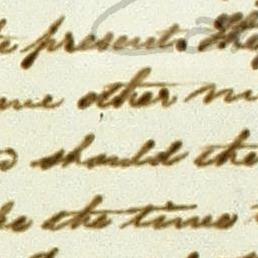 present. The
other
should the
the time